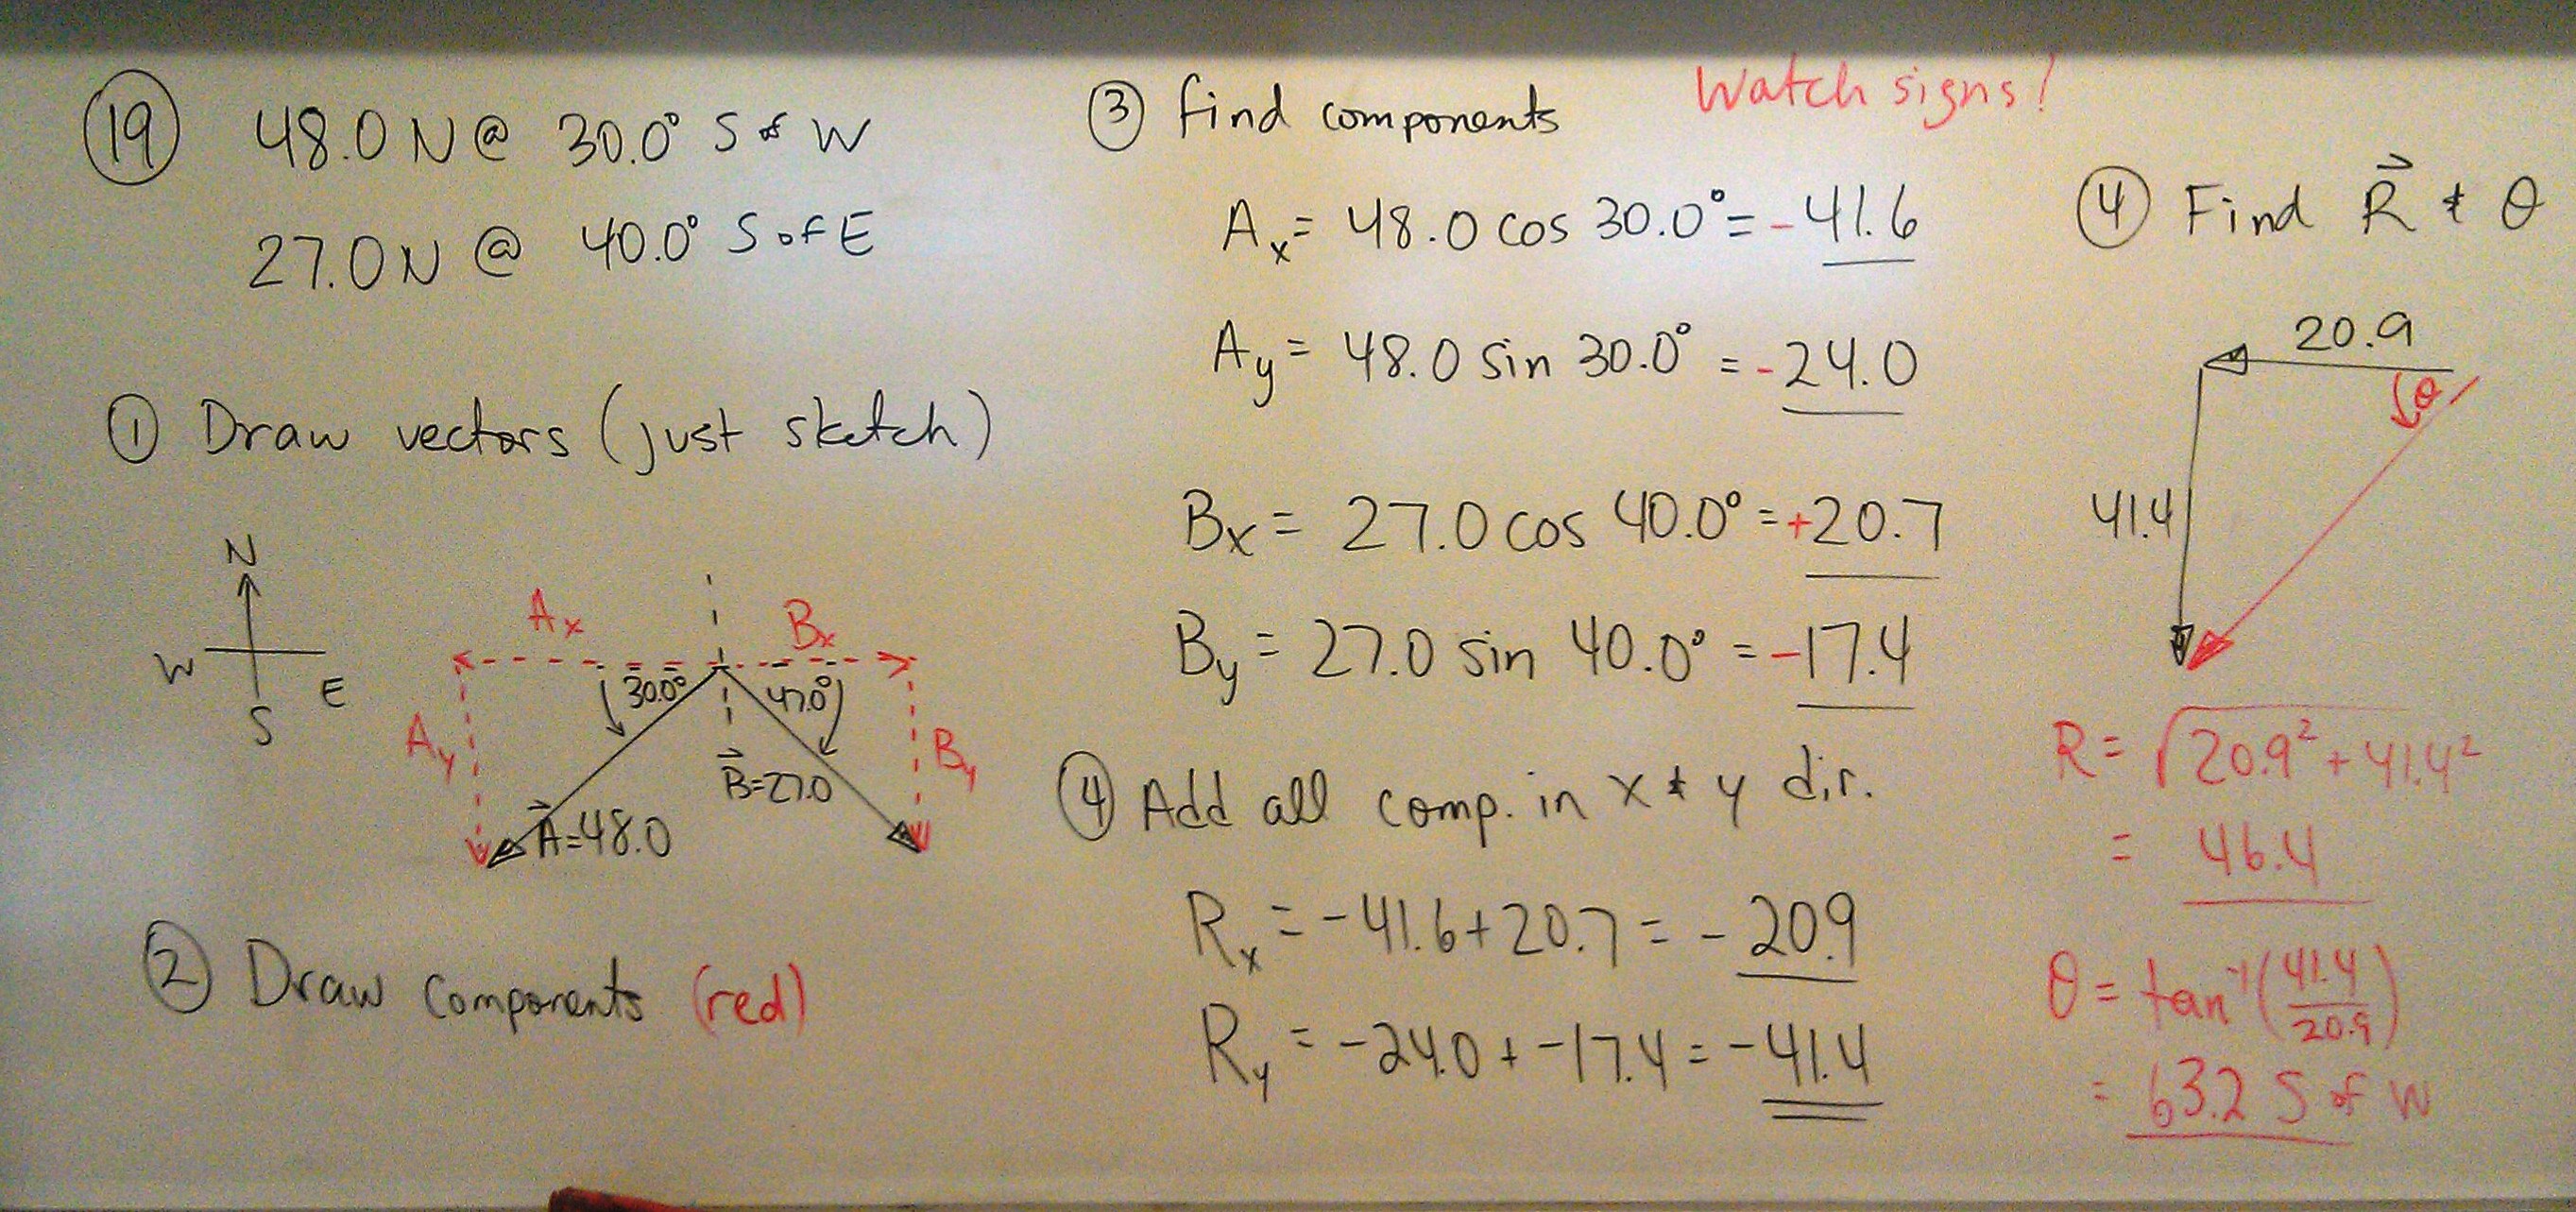 19 48.0 N @ 30.0° S of W
27.0 N @ 40.0° S of E
① Draw vectors (just sketch)
N
W E
S
Ax Bx
30.0° 47.0°
Ay By
B=27.0
A=48.0
② Draw components (red)
③ find components Watch signs!
Ax = 48.0 cos 30.0° = -41.6
Ay = 48.0 sin 30.0° = -24.0
Bx = 27.0 cos 40.0° = +20.7
By = 27.0 sin 40.0° = -17.4
④ Add all comp. in x & y dir.
Rx = -41.6+20.7 = -20.9
Ry = -24.0 + -17.4 = -41.4
④ Find R & θ
20.9
θ
41.4
R = √20.9² + 41.4²
= 46.4
θ = tan⁻¹(41.4/20.9)
= 63.2 S of W